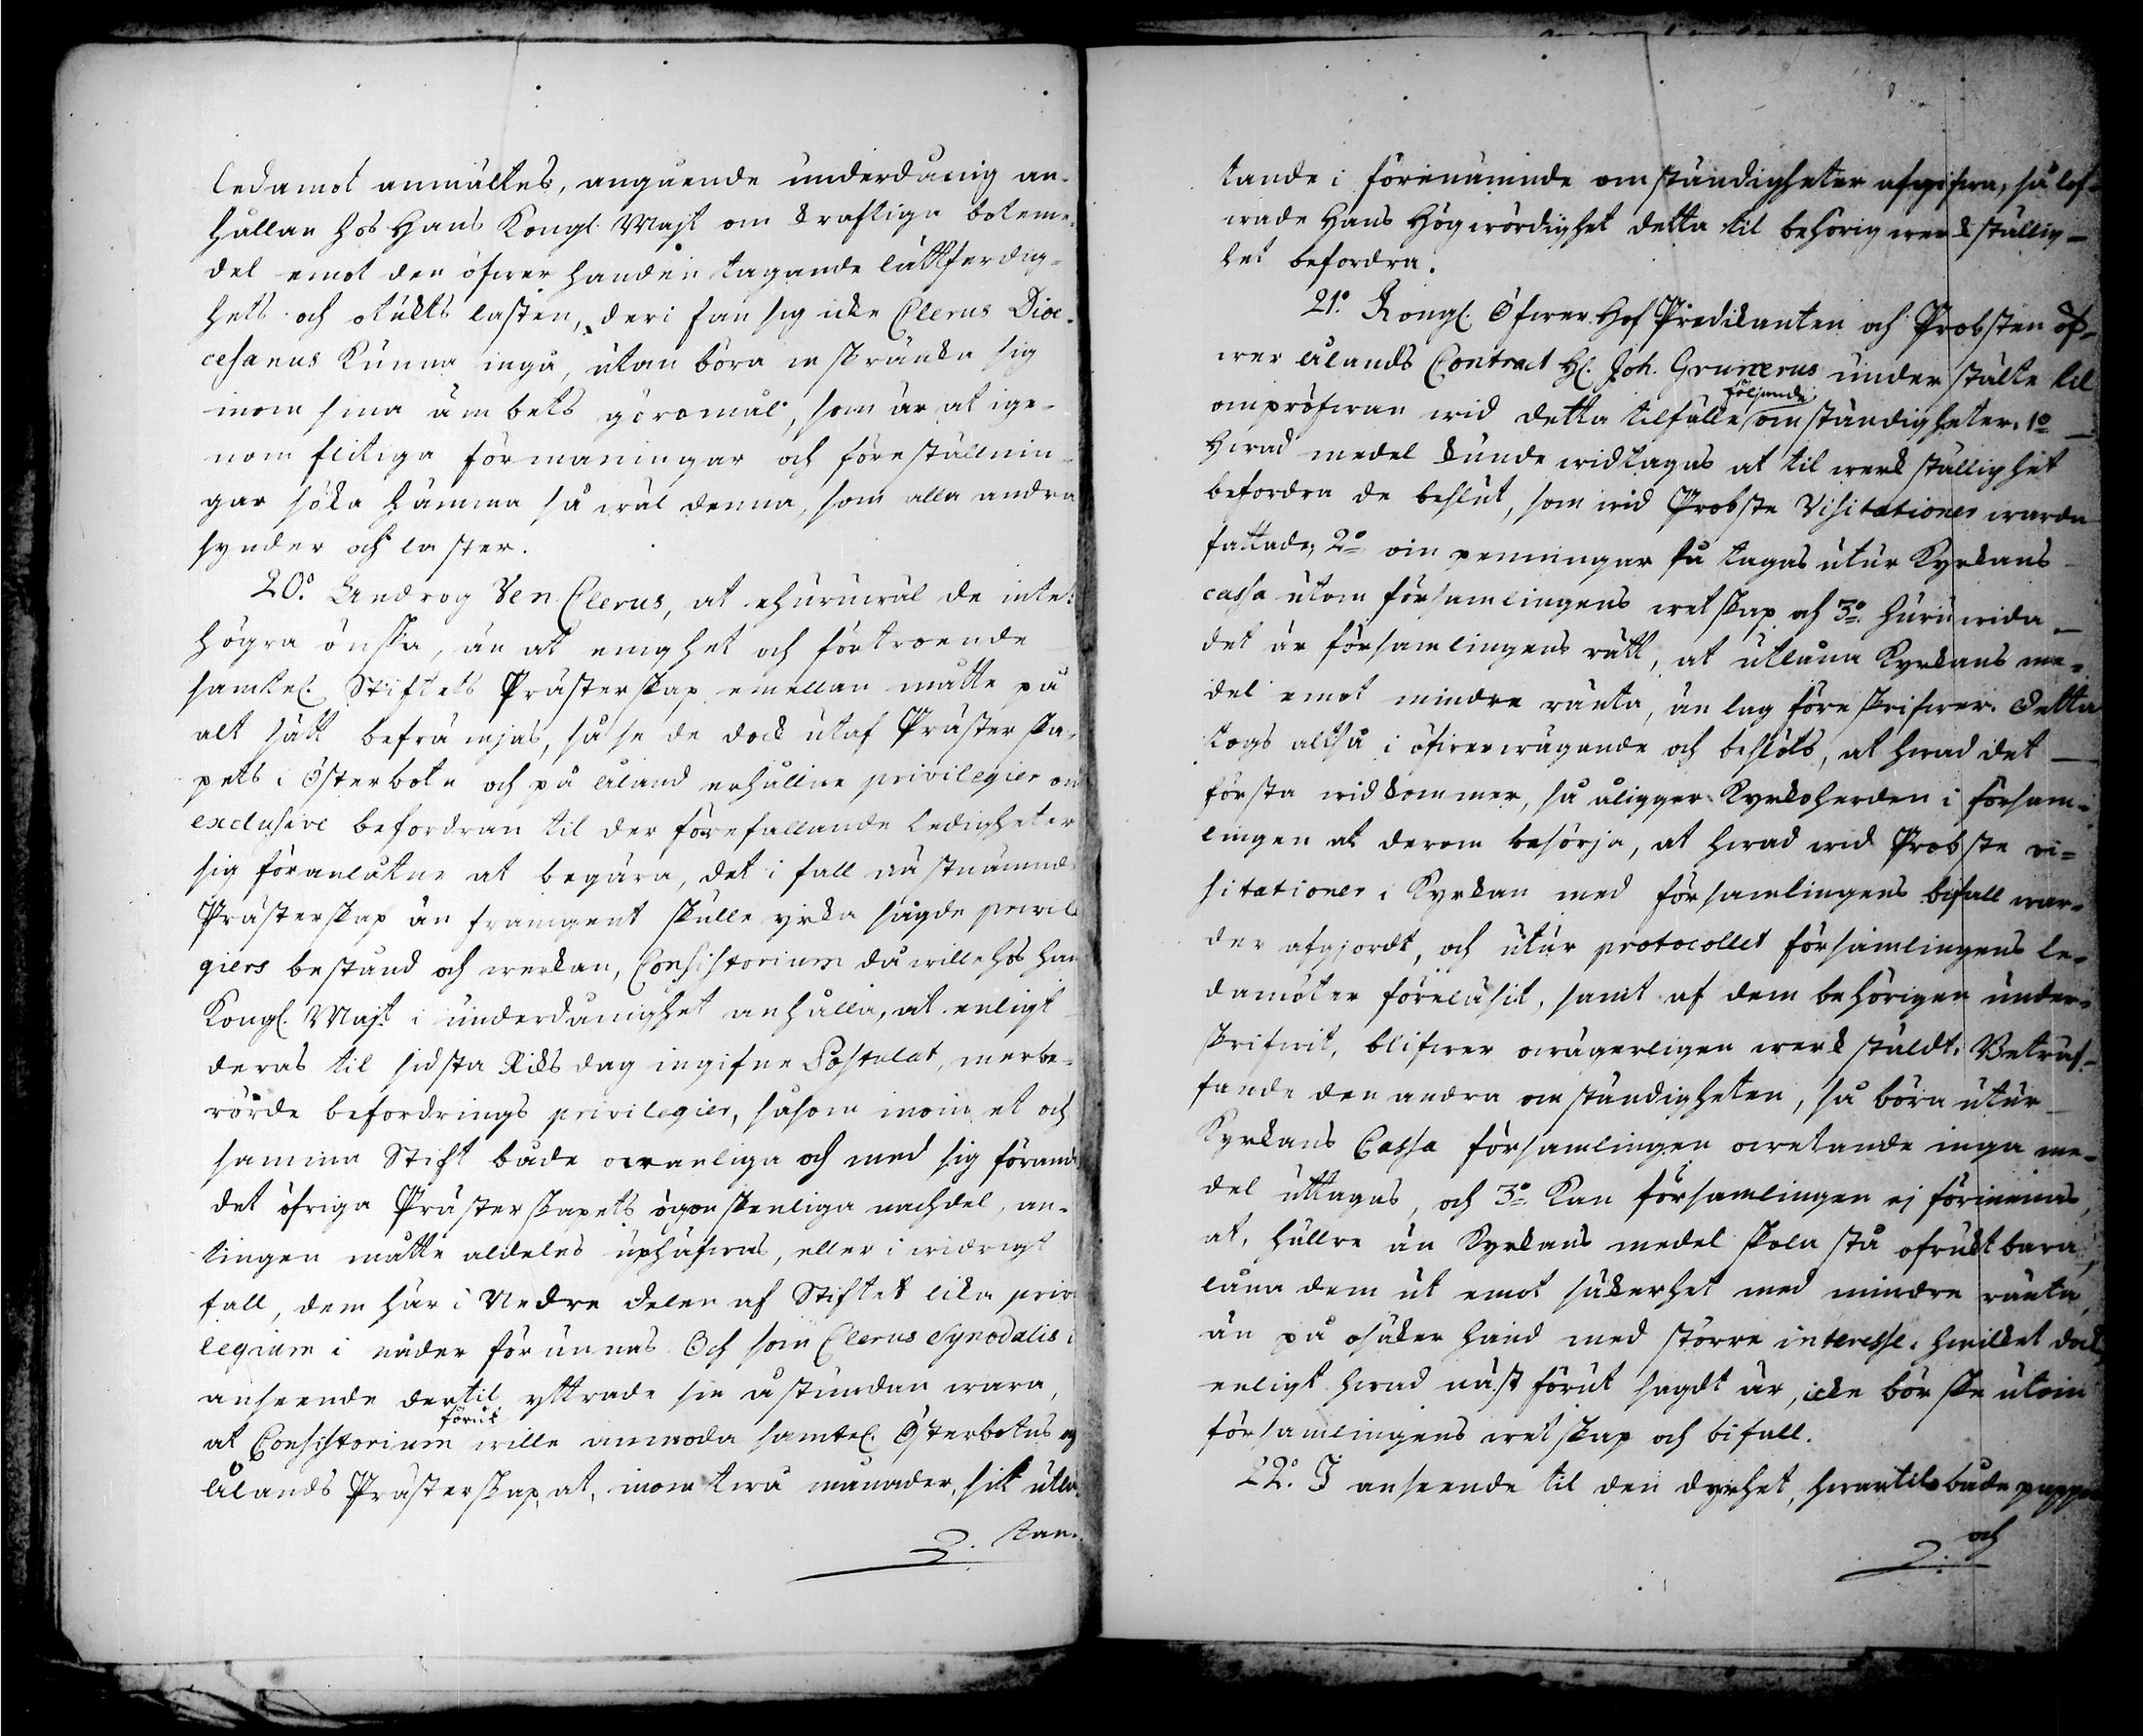 ledamot anmältes, angående underdånig an-
hållan hos Hans Kongl. Majt om kraftiga boteme-
del emot den öfwer handen tagande lättferdig-
hets och otukts lasten, deri fan sig icke Clerus Dioe-
cesanus kunna ingå, utan böra inskränka sig
inom sina ämbets göromål, som är at ige-
nom flitiga förmaningar och föreställnin-
gar söka hämma så wäl denna, som alla andra
synder och laster.
20:o Androg Ven. Clerus, at ehuruwäl de intet
högre önska, än at enighet och förtroende
samtel. Stiftets Prästerskap emellan måtte på
alt sätt befrämjas, så se de dock utaf Prästerska-
pets i Österbotn och på Åland erhållne privilegier om
exclusive befordran til der förefallande ledigheter
sig föranlåtne at begära, det i fall nästnämnde
Prästerskap än framgent skulle yrka sagde privile
giers bestånd och werkan, Consistorium då wille hos Hans
Kongl. Majt i underdånighet anhålla, at enligt
deras til sidsta Riksdag ingifne Postulat, merbe-
rörde befordrings privilegier, såsom inom et och
samma Stift både owanliga och med sig förande
det öfriga Prästerskapets ögonskenliga nachdel, an-
tingen måtte aldeles uphäfwas, eller i widrigt
fall, dem här i Nedre delen af Stiftet lika privi
legium i nåder förunnas. Och som Clerus Synodalis i
anseende dertil yttrade sin åstundan wara,
at Consistorium förut wille anmoda samtel. Österbotns og
Ålands Prästerskap, at, inom twå månader, sit utlå-
tan-
tande i förenämnde omständigheter afgifwa, så lof-
wade Hans Högwördighet detta til behörig werkställig-
het befordra.
21:o Kongl. Öfwer Hof Predikanten och Probsten öf-
wer Ålands Contract H. Joh. Grunerus understälte til
ompröfwan wid detta tilfälle följande omständigheter. 1:o
Hwad medel kunde widtagas at til werkställighet
befordra de beslut, som wid Probste Visitationer warda
fattade; 2:o om penningar få tagas utur Kyrkans
cassa utom församlingens wetskap och 3:o huru wida
det är församlingens rätt, at utlåna Kyrkans me-
del emot mindre ränta, än lag föreskrifwer. Detta
togs altså i öfwerwägande och beslöts, at hwad det
första widkommer, så åligger Kyrkoherden i försam-
lingen at derom besörja, at hwad wid Probste vi-
sitationer i Kyrkan med församlingens bifall war-
der afgjordt, och utur protocollet församlingens le-
damöter föreläsit, samt af dem behörigen under-
skrifwit, blifwer owägerligen werkstäldt. Beträf-
fande den andra omständigheten, så böra utur
Kyrkans Cassa församlingen owetande inga me-
del uttagas, och 3:o kan församlingen ej förmenas,
at, hällre än Kyrkans medel skola stå ofruktbara,
låna dem ut emot säkerhet med mindre ränta,
än på osäker hand med större interesse, hwilket dock,
enligt hwad näst förut sagdt är, icke bör ske utom
församlingens wetskap och bifall.
22:o I anseende til den dyrhet, hwartil både papper
och